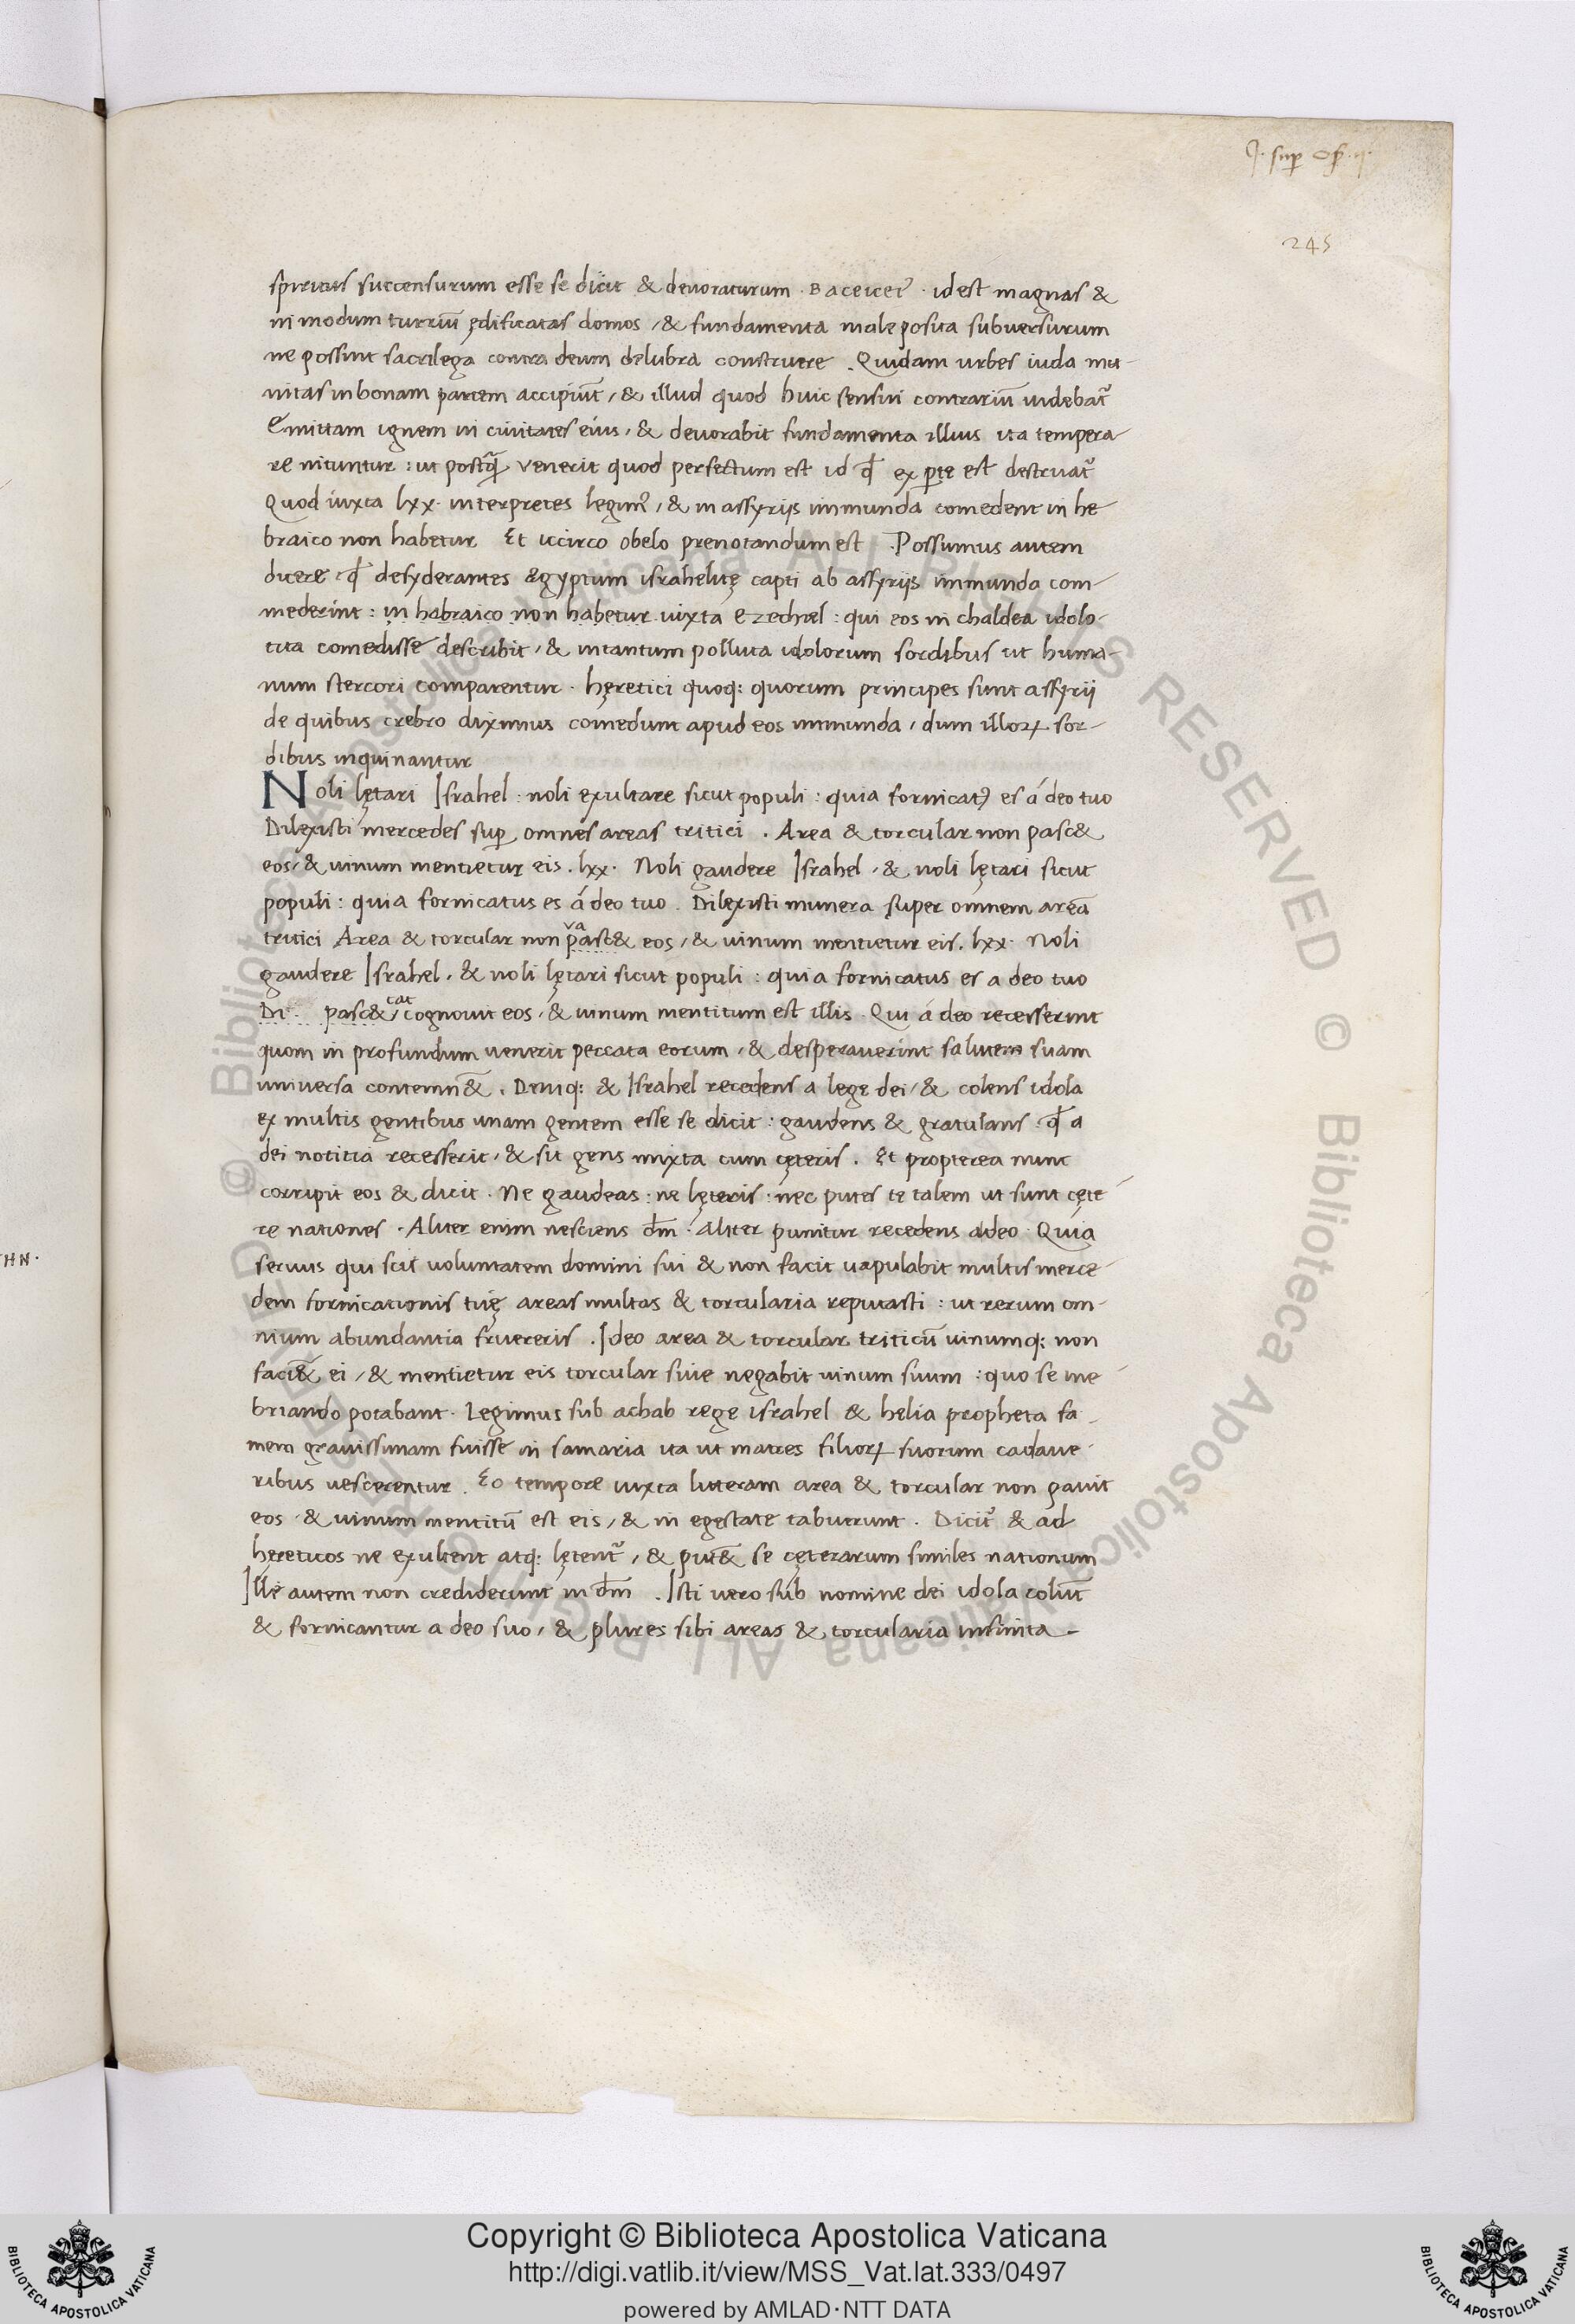 J. sup Os. ii.
245
spiritus succensurum esse se dicit & deuoraturum . BACEICET . id est magnas &
in modum turriū ędificatas domos , & fundamenta male posita subuersurum
ne possint sacrilega contra deum delubra construere . Quidam urbes iuda mu-
nitas in bonam partem accipiūt , & illud quod huic sensui contrariū uidebat᷑
Emittam ignem in ciuitates eius , & deuorabit fundamenta illius ita tempera-
re nituntur : ut postq̄ venerit quod perfectum est id qđ ex ꝑte est destruat᷑
Quod iuxta lxx . interpretes legim᷒ , & in assyrijs immunda comedent in he
braico non habetur Et iccirco obelo prenotandum est . Possumus autem
dicere . qđ desyderantes ægyptum israhelitę capti ab assyrijs immunda com-
mederint : in habraico non habetur iuxta Ezechiel : qui eos in chaldea idolo-
tita comedisse describit , & intantum polluta idolorum sordibus ut huma-
num stercori comparentur . hęretici quoq: quorum principes sunt assyrij
de quibus crebro diximus comedunt apud eos immunda , dum illoꝝ sor-
dibus inquinantur
Noli lętari Israhel . noli exultare sicut populi : quia fornicat᷒ es á deo tuo
Dilexisti mercedes suꝑ omnes areas tritici . Area & torcular non pasc&
eos , & uinum mentietur eis . lxx . Noli gaudere Israhel , & noli lętari sicut
populi : quia fornicatus es á deo tuo . Dilexisti munera super omnem areā
va
tritici Area & torcular non pasc& eos , & uinum mentietur eis . lxx . Noli
gaudere Israhel , & noli lętari sicut populi : quia fornicatus es a deo tuo
cat
Di . pasc& , cognouit eos , & uinum mentitum est illis . Qui á deo recesserint
quom in profundum uenerit peccata eorum , & desperauerint salutem suam
uniuersa contemn&̄ . Deniq: & Israhel recedens a lege dei , & colens idola
ex multis gentibus unam gentem esse se dicit : gaudens & gratulans . qđ a
dei notitia recesserit , & sit gens mixta cum cęteris . Et propterea nunc
corripit eos & dicit . Ne gaudeas : ne lęteris : nec putes te talem ut sunt cęte-
re nationes . Aliter enim nesciens dm̄ . Aliter punitur recedens adeo . Quia
seruus qui scit uoluntatem domini sui & non facit uapulabit multis merce-
dem fornicationis tuę areas multas & torcularia reputasti : ut rerum om-
nium abundantia fruereris . Ideo area & torcular triticū uinumq: non
faci&̄ ei , & mentietur eis torcular siue negabit uinum suum : quo se ine-
briando potabant . Legimus sub achab rege israhel & helia propheta fa-
mem grauissimam fuisse in samaria ita ut matres filioꝝ suorum cadaue-
ribus uescerentur . Eo tempore iuxta litteram area & torcular non pauit
eos & uinum mentitū est eis , & in egestate tabuerunt . Dicit᷑ & ad
hereticos ne exultent atq: lętent᷑ , & put&̄ se cęterarum similes nationum
Ille autem non crediderunt in dm̄ . Isti uero sub nomine dei idola colūt
& fornicantur a deo suo , & plures sibi areas & torcularia infinita -
HN .
© Biblioteca Apostolica Vaticana ALL RIGHTS RESERVED
© Biblioteca Apostolica Vaticana ALL RIGHTS RESERVED
Copyright © Biblioteca Apostolica Vaticana
http://digi.vatlib.it/view/MSS_Vat.lat.333/0497
powered by AMLAD·NTT DATA
BIBLIOTECA APOSTOLICA VATICANA
BIBLIOTECA APOSTOLICA VATICANA